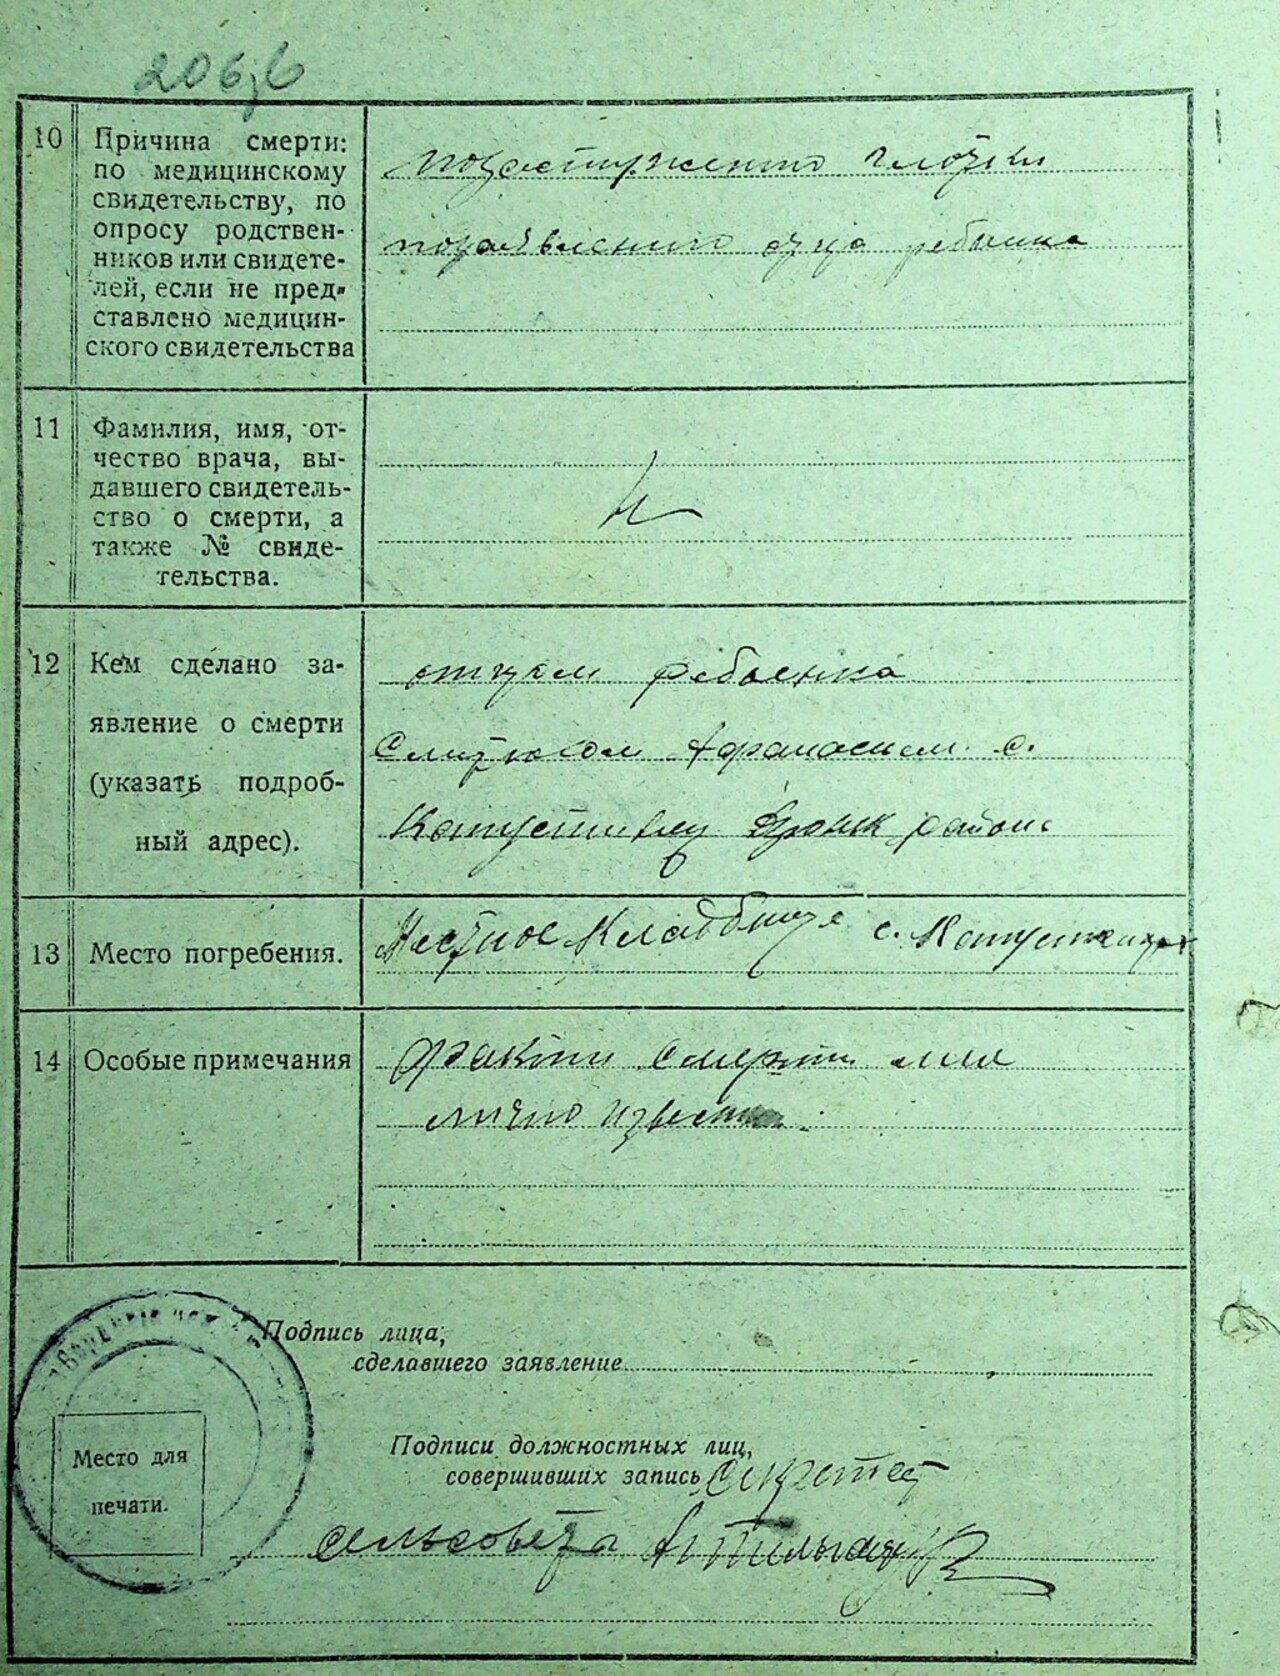 206
10 Причина смерти:
по медицинскому
свидетельству, по
опросу родствен-
ников или свидете-
лей, если не пред-
ставлено медицин-
ского свидетельства
отца ребенка
11 Фамилия, имя, от-
чество врача, вы-
давшего свидетель-
ство о смерти, а
также № свиде-
тельства.
12 Кем сделано за-
явление о смерти
(указать подроб-
ный адрес).
отцем ребьенка
Афанасием с.
района
13 Место погребения.
Местное Кладбище с.
14 Особые примечания
Факты смерти мне
лично известны.
Подпись лица,
сделавшего заявление
Место для
печати.
Подписи должностных лиц,
совершивших запись
сельсовета